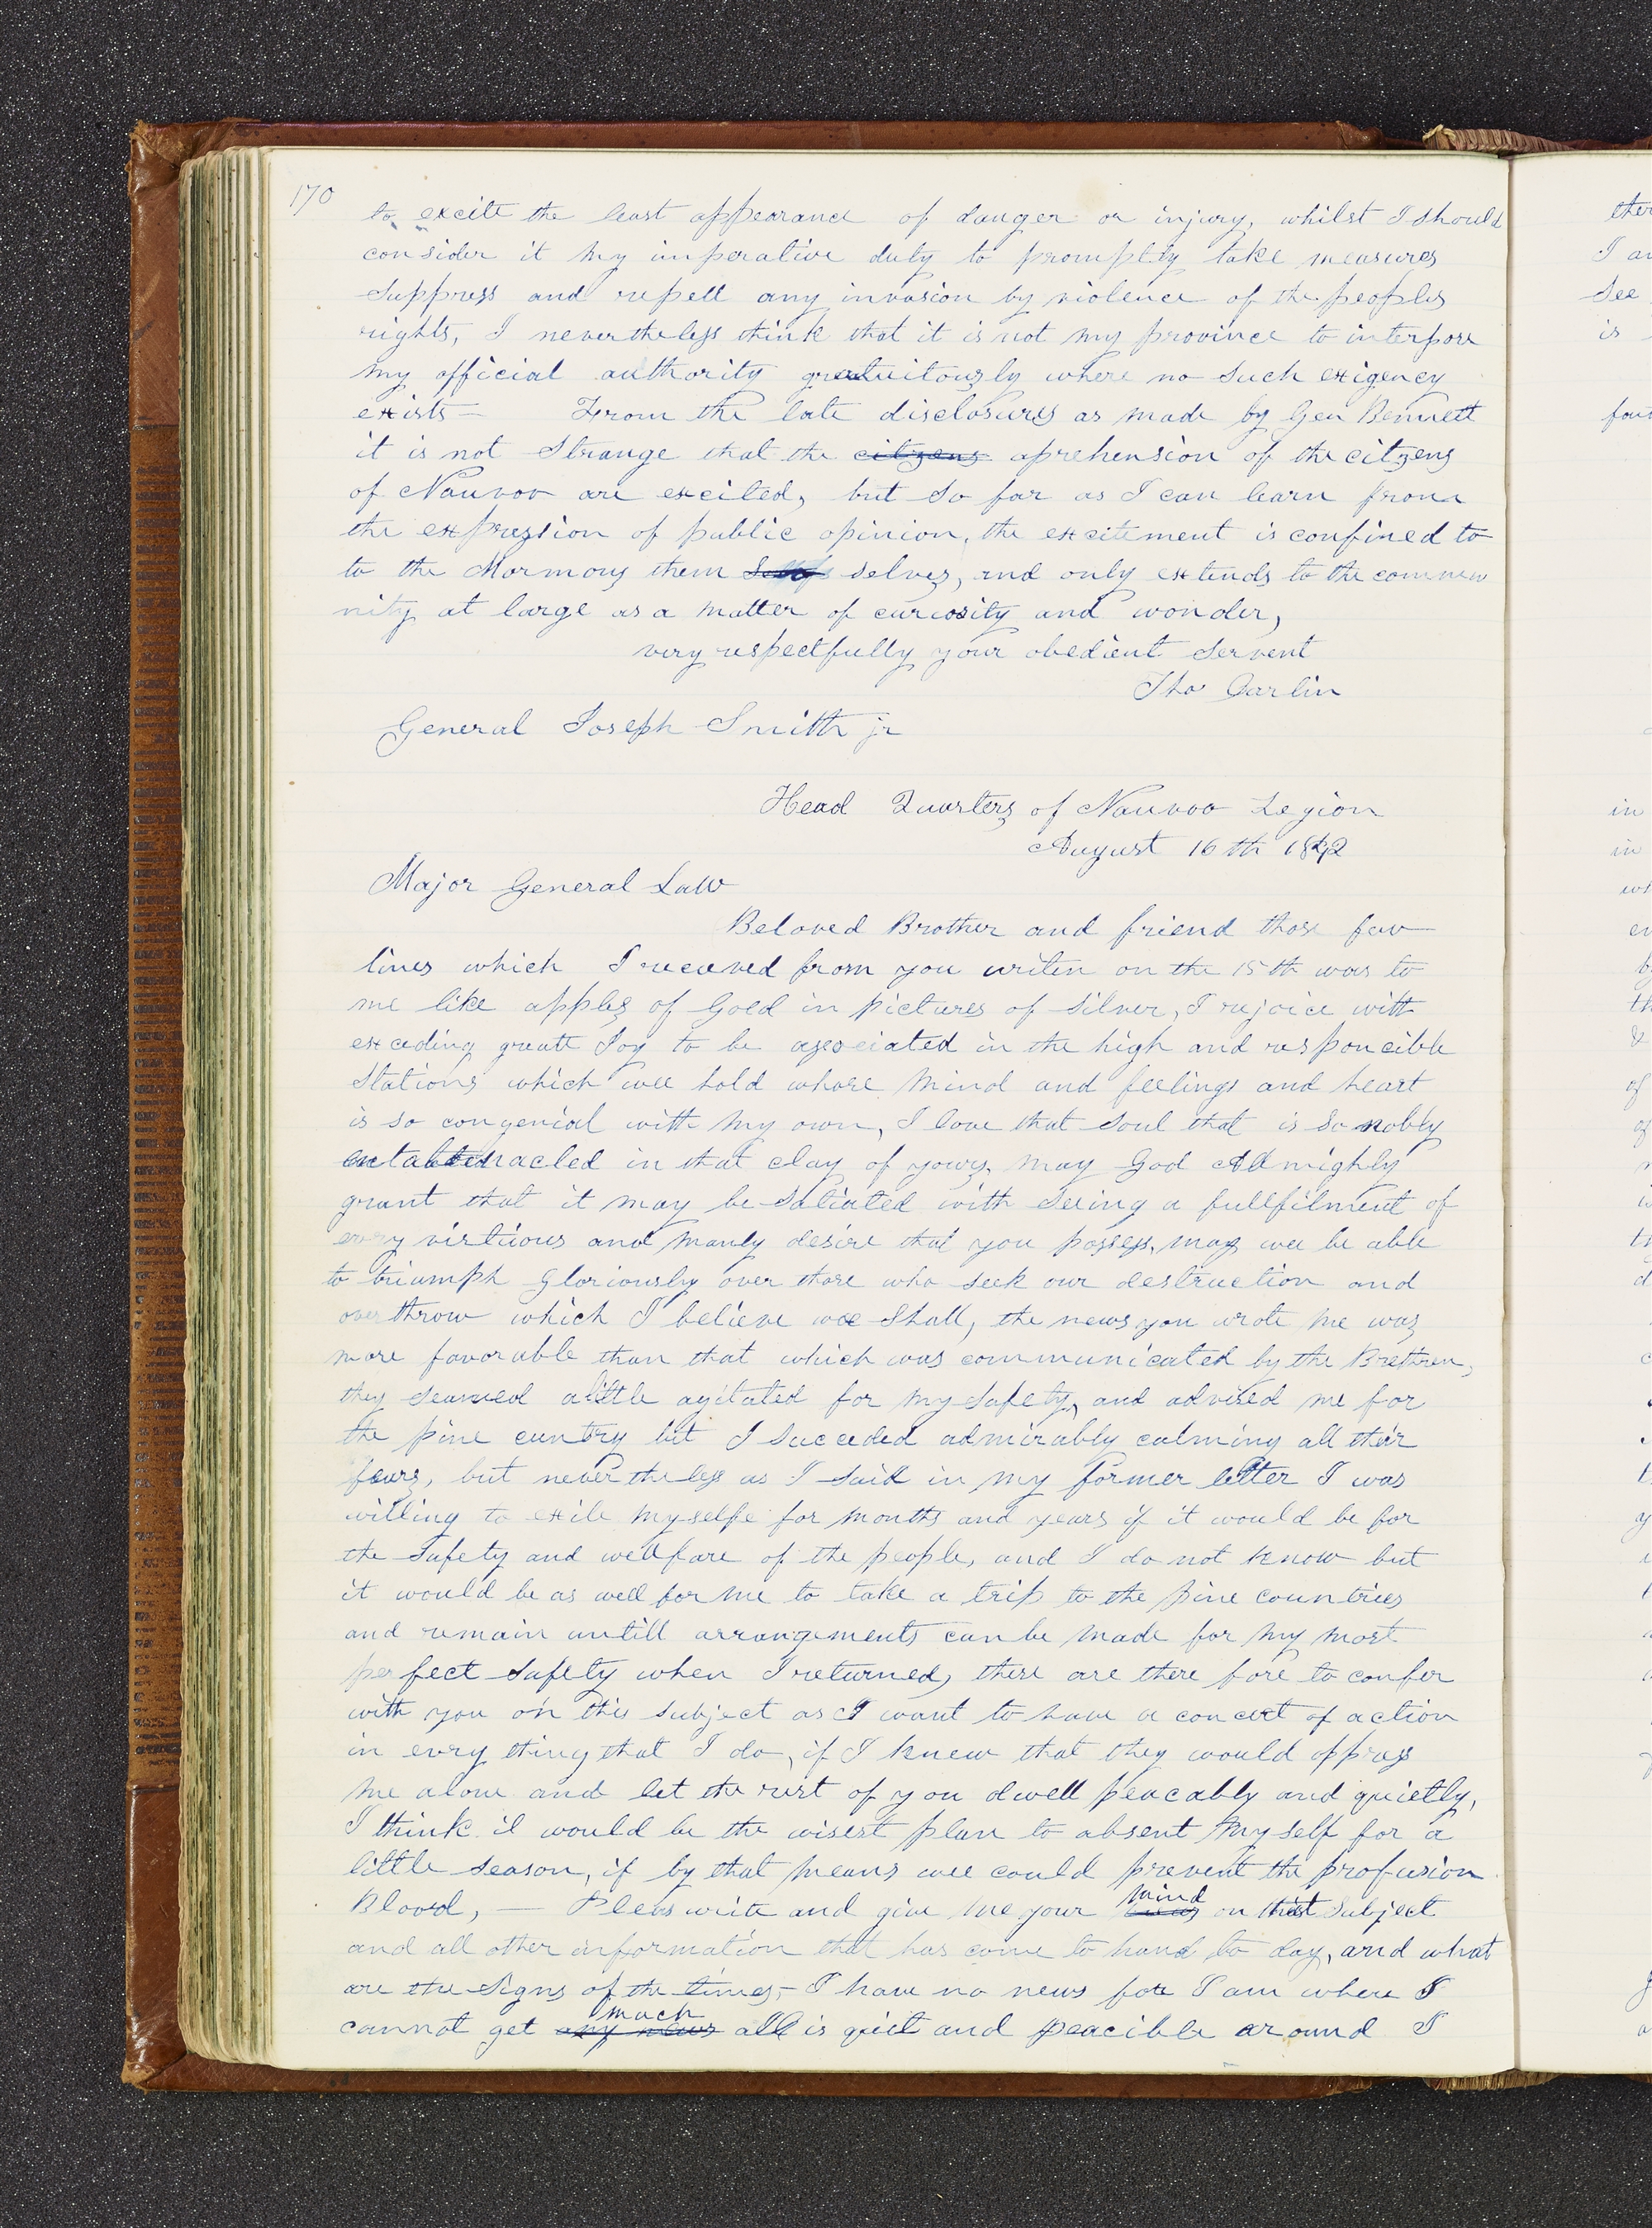 170
to excite the least appearance of danger or injury, whilst I should
consider it my imperative duty to promptly take measures
suppress and repell any invasion by violence of the peoples
rights, I nevertheless think that it is not my province to interpose
my official authority gratuitously where no such exigency
exists — From the late disclosures as made by Gen Bennett
it is not Strange that the citzens aprehension of the citzens
of Nauvoo are excited, but so far as I can learn from
the expression of public opinion, the excitement is confined to
to the Mormons them selves, and only extends to the commu
nity at large as a matter of curiosity and wonder,
very respectfully your obedient servent
Tho Carlin
General Joseph Smith jr
Head Quarters of Nauvoo Legion
August 16th 1842
Major General Law
Beloved Brother and friend those few
lines which I received from you writen on the 15th was to
me like apples of Gold in pictures of silver, I rejoice with
exceding greatt Joy to be asociated in the high and responcible
stations which wee hold whose mind and feelings and heart
is so congenial with my own, I love that soul that is so nobly
entabernacled in that clay of yours, may God Allmighly
grant that it may be satiated with seeing a fullfilment of
every virtuous and manly desire that you possess, may wee be able
to triumph Gloriously over those who seek our destruction and
overthrow which I believe wee shall, the news you wrote me was
more favorable than that which was communicated by the Brethren,
they seamed alittle agitated for my safety, and advised me for
the pine cuntry but I succeded admirably calming all their
fears, but never the less as I said in my former letter I was
willing to exile myselfe for months and years if it would be for
the safety and wellfare of the people, and I do not know but
it would be as well for me to take a trip to the pine countries
and remain untill arrangements can be made for my most
perfect safety when I returned, these are there fore to confer
with you on this subject as I want to have a concert of action
in evry thing that I do, if I knew that they would oppress
me alone and let the rest of you dwell peacably and quietly,
I think it would be the wisest plan to absent my self for a
little season, if by that means wee could prevent the profusion
Blood, — Pleas write and give me your mind on that subject
and all other information that has come to hand to day, and what
are the signs of the times, — I have no news for I am where I
cannot get any news much all is quiet and peacible around I